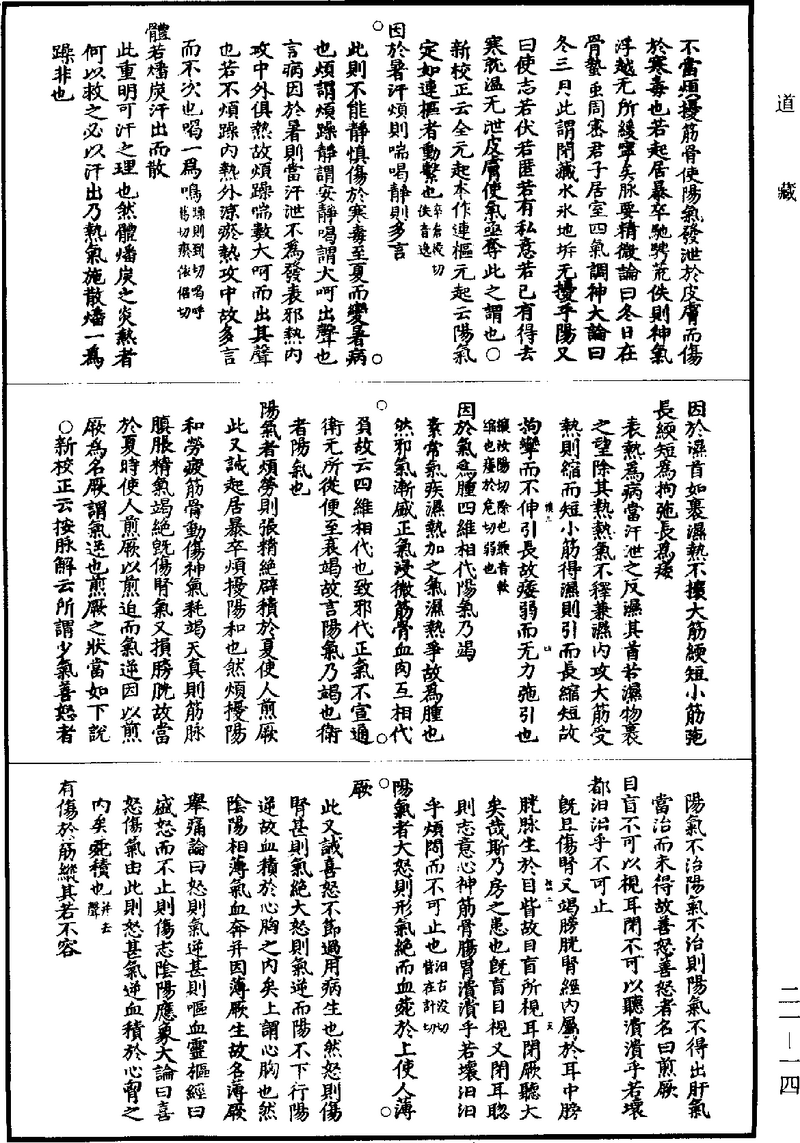 道藏
不當煩擾筋骨使陽氣發泄於皮膚而傷
於寒毒也若起居暴卒馳騁荒佚則神氣
浮越无所綏寧矣脉要精微論曰冬日在
骨蟄虫周密君子居室四氣調神大論曰
冬三月此謂閉藏水氷地坼无擾乎陽又
曰使志若伏若匿若有私意若已有得去
寒就温无泄皮膚使氣亟奪此之謂也○
新校正云全元起本作連樞元起云陽氣
定如連樞者動繫也
因於暑汗煩則喘喝靜則多言
此則不能靜慎傷於寒毒至夏而變暑病
也煩謂煩躁靜謂安靜喝謂大呵出聲也
言病因於暑則當汗泄不爲發表邪熱内
攻中外俱熱故煩躁喘數大呵而出其聲
也若不煩躁内熱外凉瘀熱攻中故多言
而不次也喝一爲鳴
體若燔炭汗出而散
此重明可汗之理也然體燔炭之炎熱者
何以救之必以汗出乃熱氣施散燔一爲
躁非也
因於濕首如裹濕熱不攘大筋緛短小筋弛
長緛短爲拘弛長爲痿
表熱爲病當汗泄之反濕其首若濕物裹
之望除其熱熱氣不釋兼濕内攻大筋受
熱則縮而短小筋得濕則引而長縮短故
拘攣而不伸引長故痿弱而无力弛引也
攘汝陽切除也緛音軟
縮也痿於危切弱也
因於氣爲腫四維相代陽氣乃竭
素常氣疾濕熱加之氣濕熱爭故爲腫也
然邪氣漸盛正氣浸微筋骨血肉互相代
負故云四維相代也致邪代正氣不宣通
衛无所從便至衰竭故言陽氣乃竭也衛
者陽氣也
陽氣者煩勞則張精絶辟積於夏使人煎厥
此又誡起居暴卒煩擾陽和也然煩擾陽
和勞疲筋骨動傷神氣耗竭天真則筋脉
䐜脹精氣竭絶旣傷腎氣又損膀胱故當
於夏時使人煎厥以煎迫而氣逆因以煎
厥爲名厥謂氣逆也煎厥之狀當如下說
○新校正云按脉解云所謂少氣善怒者
陽氣不治陽氣不治則陽氣不得出肝氣
當治而未得故善怒善怒者名曰煎厥
目盲不可以視耳閉不可以聽潰潰乎若壞
都汩汩乎不可止
旣且傷腎又竭膀胱腎經内屬於耳中膀
胱脉生於目眥故目盲所視耳閉厥聽大
矣哉斯乃房之患也旣盲目視又閉耳聡
則志意心神筋骨腸胃潰潰乎若壞汩汩
乎煩悶而不可止也
陽氣者大怒則形氣絶而血菀於上使人薄
厥
此又誡喜怒不節過用病生也然怒則傷
腎甚則氣絶大怒則氣逆而陽不下行陽
逆故血積於心胸之内矣上謂心胸也然
陰陽相薄氣血奔并因薄厥生故名薄厥
舉痛論曰怒則氣逆甚則嘔血靈樞經曰
盛怒而不止則傷志陰陽應象大論曰喜
怒傷氣由此則怒甚氣逆血積於心胷之
内矣菀積也
有傷於筋縱其若不容
二一—一四